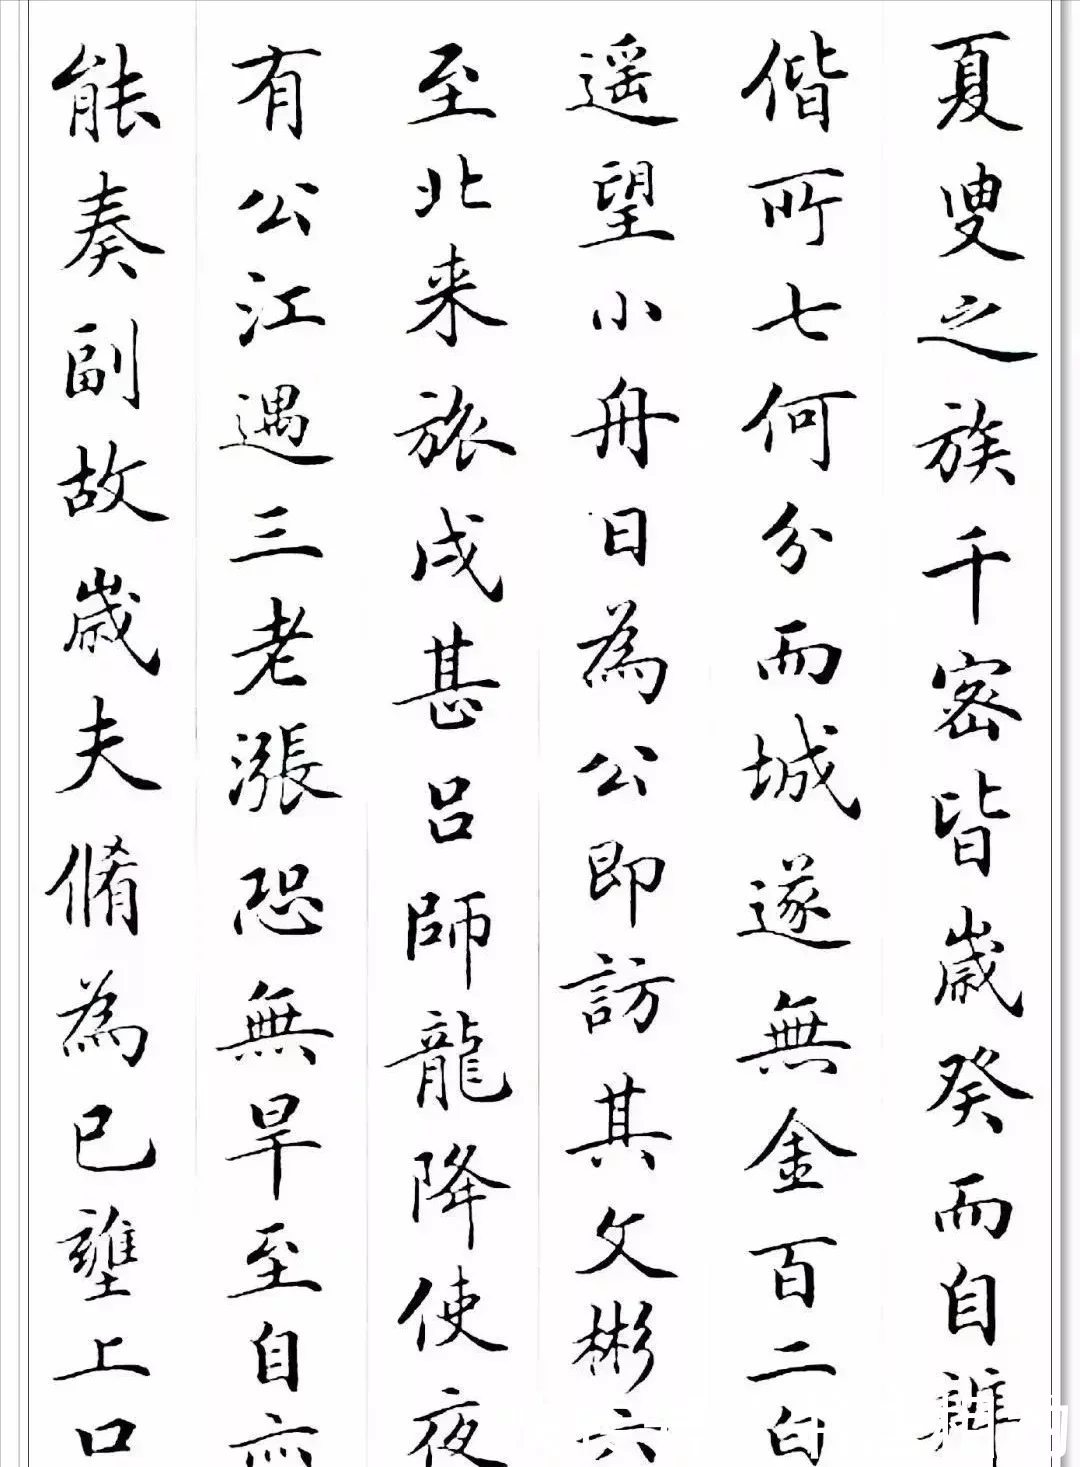 夏叟之族千密皆歲癸而自
偕所七何分而城遂無金百二
遥望小舟日為公即訪其文彬
至北来旅戌甚吕師龍降使夜
有公江遇三老漲恐無旱至自
能奏副故歲夫脩為已壅上口